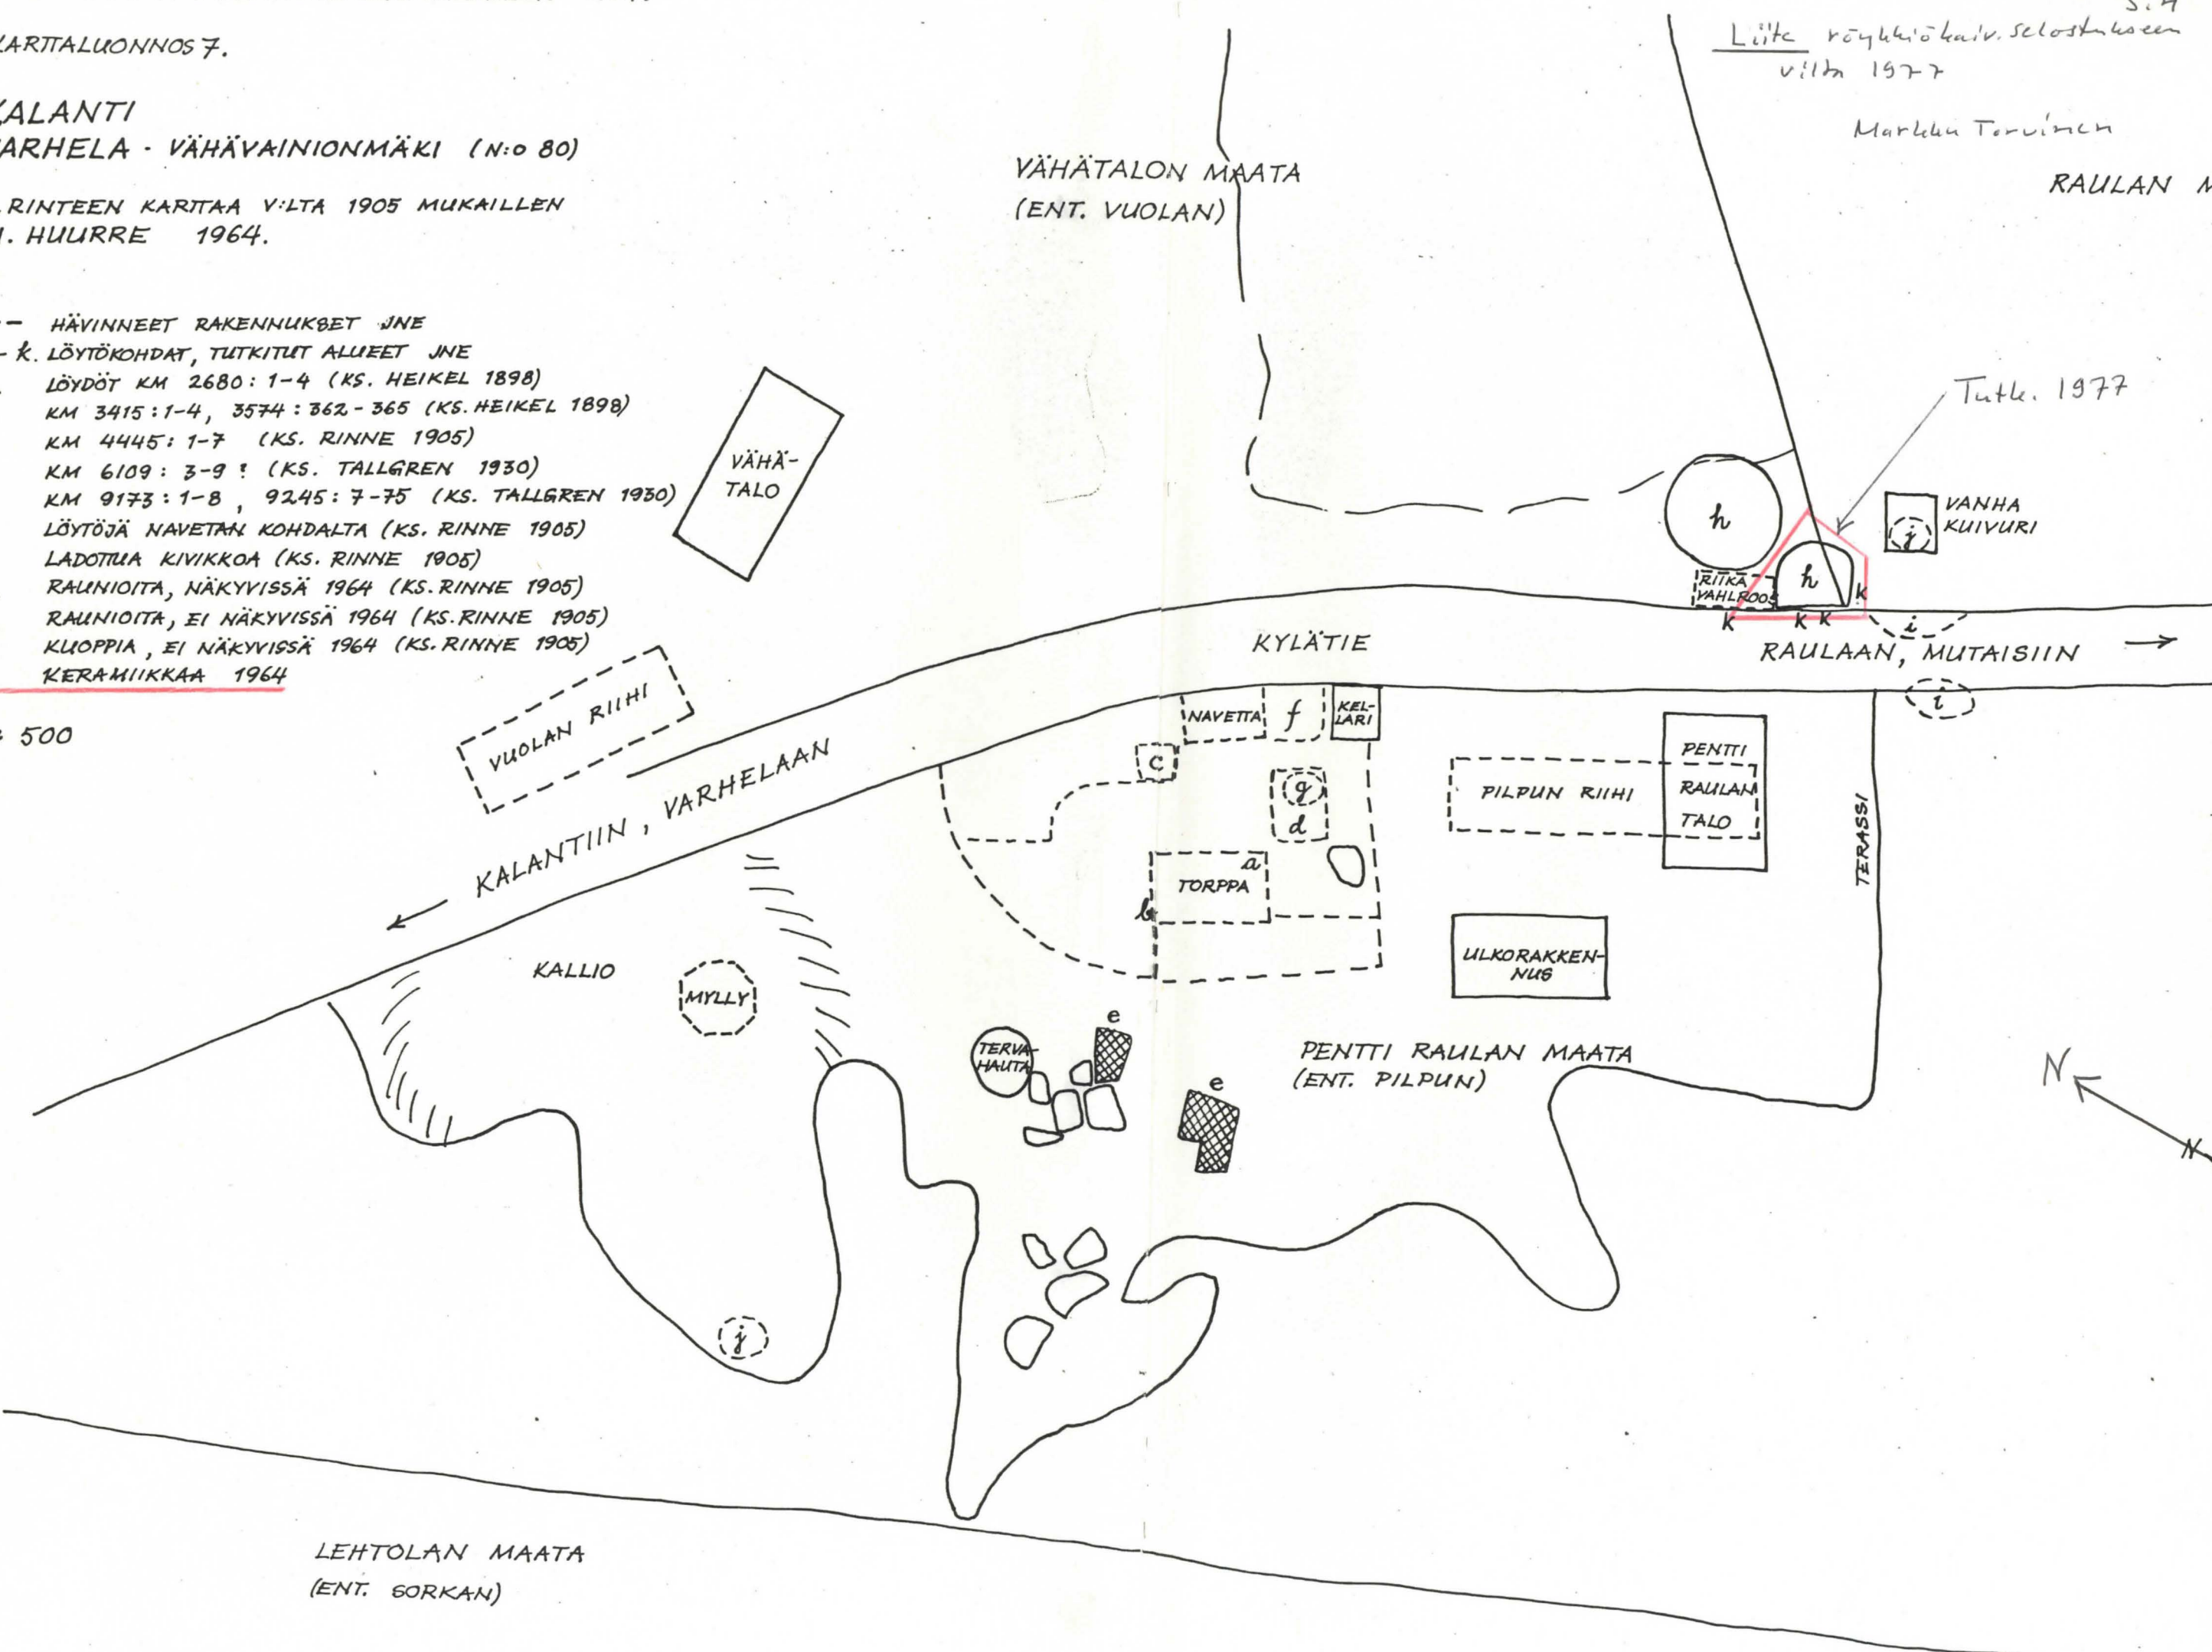 KARTTALUONNOS 7.
KALANTI
VARHELA - VÄHÄVAINIONMÄKI (N:O 80)
RINTEEN KARTTAA V:LTA 1905 MUKAILLEN
M. HUURRE 1964.
HÄVINNEET RAKENNUKSET JNE
- k. LÖYTÖKOHDAT, TUTKITUT ALUEET JNE
LÖYDÖT KM 2680: 1-4 (KS. HEIKEL 1898)
KM 3415: 1-4, 3574: 362-365 (KS. HEIKEL 1898)
KM 4445: 1-7 (KS. RINNE 1905)
KM 6109: 3-9 ? (KS. TALLGREN 1930)
KM 9173: 1-8, 9245: 7-75 (KS. TALLGREN 1930)
LÖYTÖJÄ NAVETAN KOHDALTA (KS. RINNE 1905)
LADOTTUA KIVIKKOA (KS. RINNE 1905)
RAUNIOITA, NÄKYVISSÄ 1964 (KS. RINNE 1905)
RAUNIOITA, EI NÄKYVISSÄ 1964 (KS. RINNE 1905)
KUOPPIA, EI NÄKYVISSÄ 1964 (KS. RINNE 1905)
KERAMIIKKAA 1964
500
S. 4
Liite röykkiökaiv. selostukseen
vilta 1977
Markku Torvinen
RAULAN M
VÄHÄTALON MAATA
(ENT. VUOLAN)
Tutk. 1977
VÄHÄ-
TALO
h
VANHA
KUIVURI
j
h
RIIKA
VAHLROOS
k
k k k
i
KYLÄTIE
RAULAAN, MUTAISIIN
i
VUOLAN RIIHI
KALANTIIN, VARHELAAN
NAVETTA
f
KEL-
LARI
c
g
d
PILPUN RIIHI
PENTTI
RAULAN
TALO
TERASSI
a
TORPPA
b
ULKORAKKEN-
NUS
KALLIO
MYLLY
e
TERVA-
HAUTA
e
PENTTI RAULAN MAATA
(ENT. PILPUN)
N
N
j
LEHTOLAN MAATA
(ENT. SORKAN)